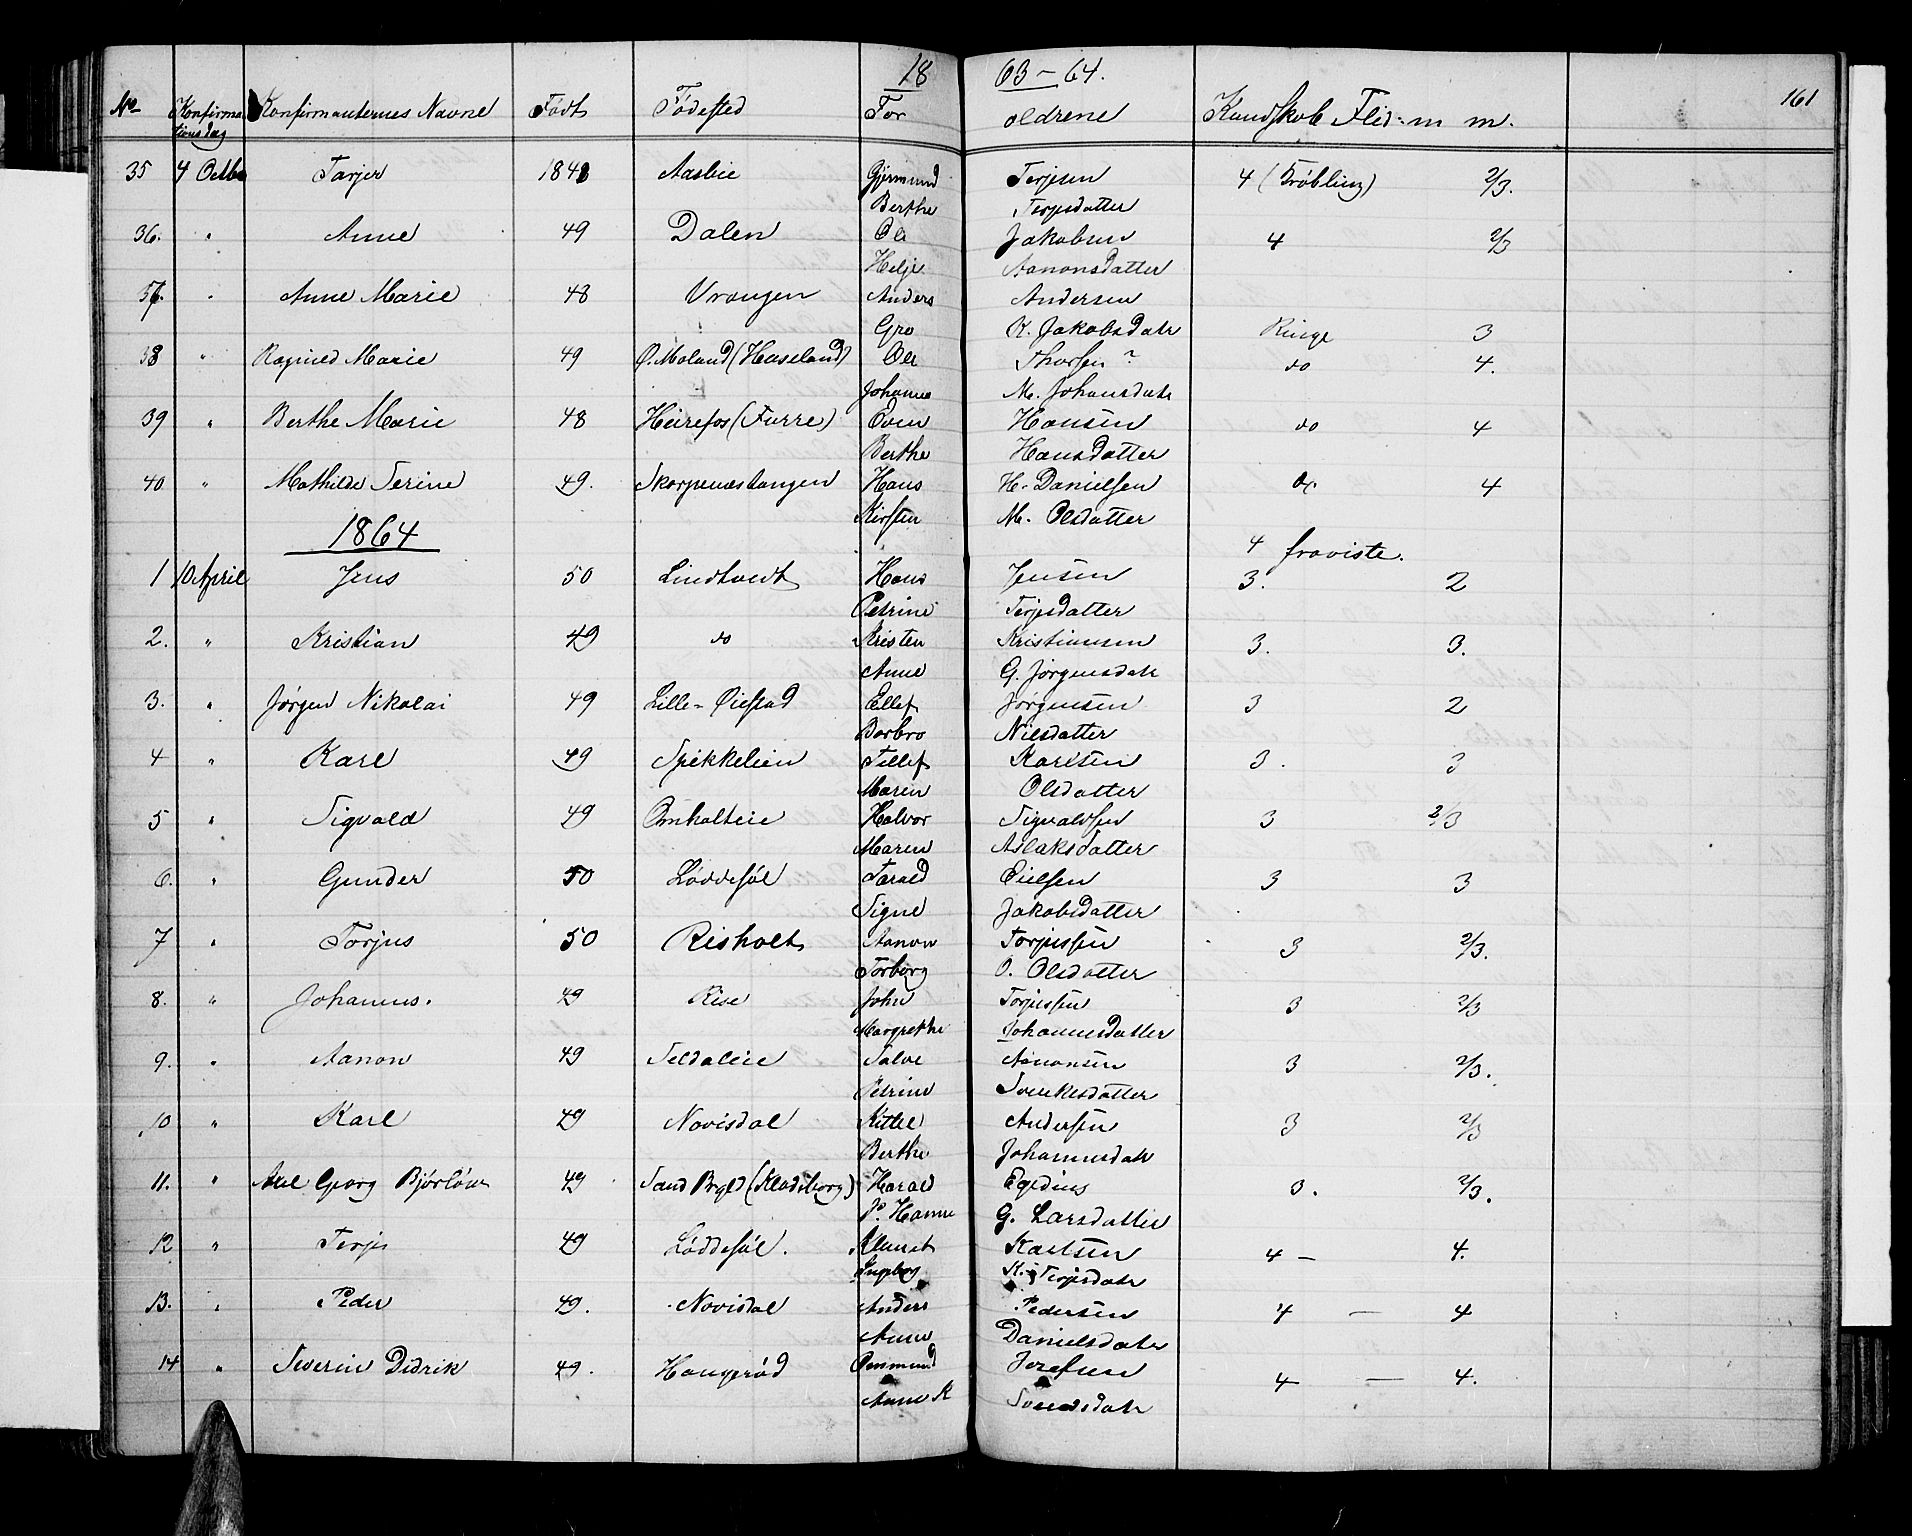 18 63-64.
161
No Konfirmationsdag Konfirmanternes Navne Født Fødested For oldrene Kundskab Flid m m.
35 4 Octbr Tarjer 1848 Aasbie Gjermund Terjesen 4 (Trøbling) 2/3.
Berthe Terjesdatter
36. " Anne 49 Dalen Ole Jakobsen 4 2/3
Helje Aanonsdatter
37. " Anne Marie 48 Vrangen Anders Andersen
Gro K. Jakobsdatr Ringe 3
38 " Ragnild Marie 49 Ø. Moland (Haseland) Ole Thorsen ? do 4.
Johanne M. Johansdatr
39 " Berthe Marie 48 Heirefos (Furre) Even Hansen do 4
Berthe Hansdatter
40 " Mathilde Serine 49. Skarpenæstangen Hans H. Danielsen do 4
Kirsten M. Olsdatter
1864
4 fraviste.
1 10 April Jens 50 Lindtvedt Hans Jensen 3. 2
Petrine Terjesdatter
2. " Kristian 49 do Kristen Kristiansen 3. 3.
Anne G. Jørgensdatr
3. " Jørgen Nikolai 49 Lille-Øiestad Ellef Jørgensen 3 2
Barbro Nilsdatter
4 " Karl 49 Spikkelien Tellef Karlsen 3. 3
Maren Olsdatter
5 " Sigvald 49 Omholteie Halvor Sigvaldsen 3 2/3
Maren Aslaksdatter
6. " Gunder 50 Løddesøl Tarald Eielsen 3 3
Signe Jakobsdatter
7 " Torjus 50 Risholt Aanon Torjussen 3 2/3.
Torborg O. Olsdatter
8. " Johannes. 49 Rise John Torjussen 3 2/3
Margrethe Johannesdatter
9. " Aanon 49 Seldaleie Salve Aanonsen 3 2/3.
Petrine Svenkesdatter
10 " Karl 49 Novisdal Kittel Andersen 3 2/3
Berthe Johannesdatr
11. " Axel Georg Bjørløw 49 Sand Prgld (Kladsborg) Harald Egidius 3. 2/3.
P. Hanne G. Larsdatter
12 " Terje 49 Løddesøl. Klemet Karlsen 4 - 4.
Ingeborg K. Terjesdatr
13. " Peder 49. Novisdal Anders Pedersen 4 - 4
Anne Danielsdatr
14 " Severin Didrik 49. Haugerød Omund Josefsen 4 - 4.
Anne K Svendsdatr